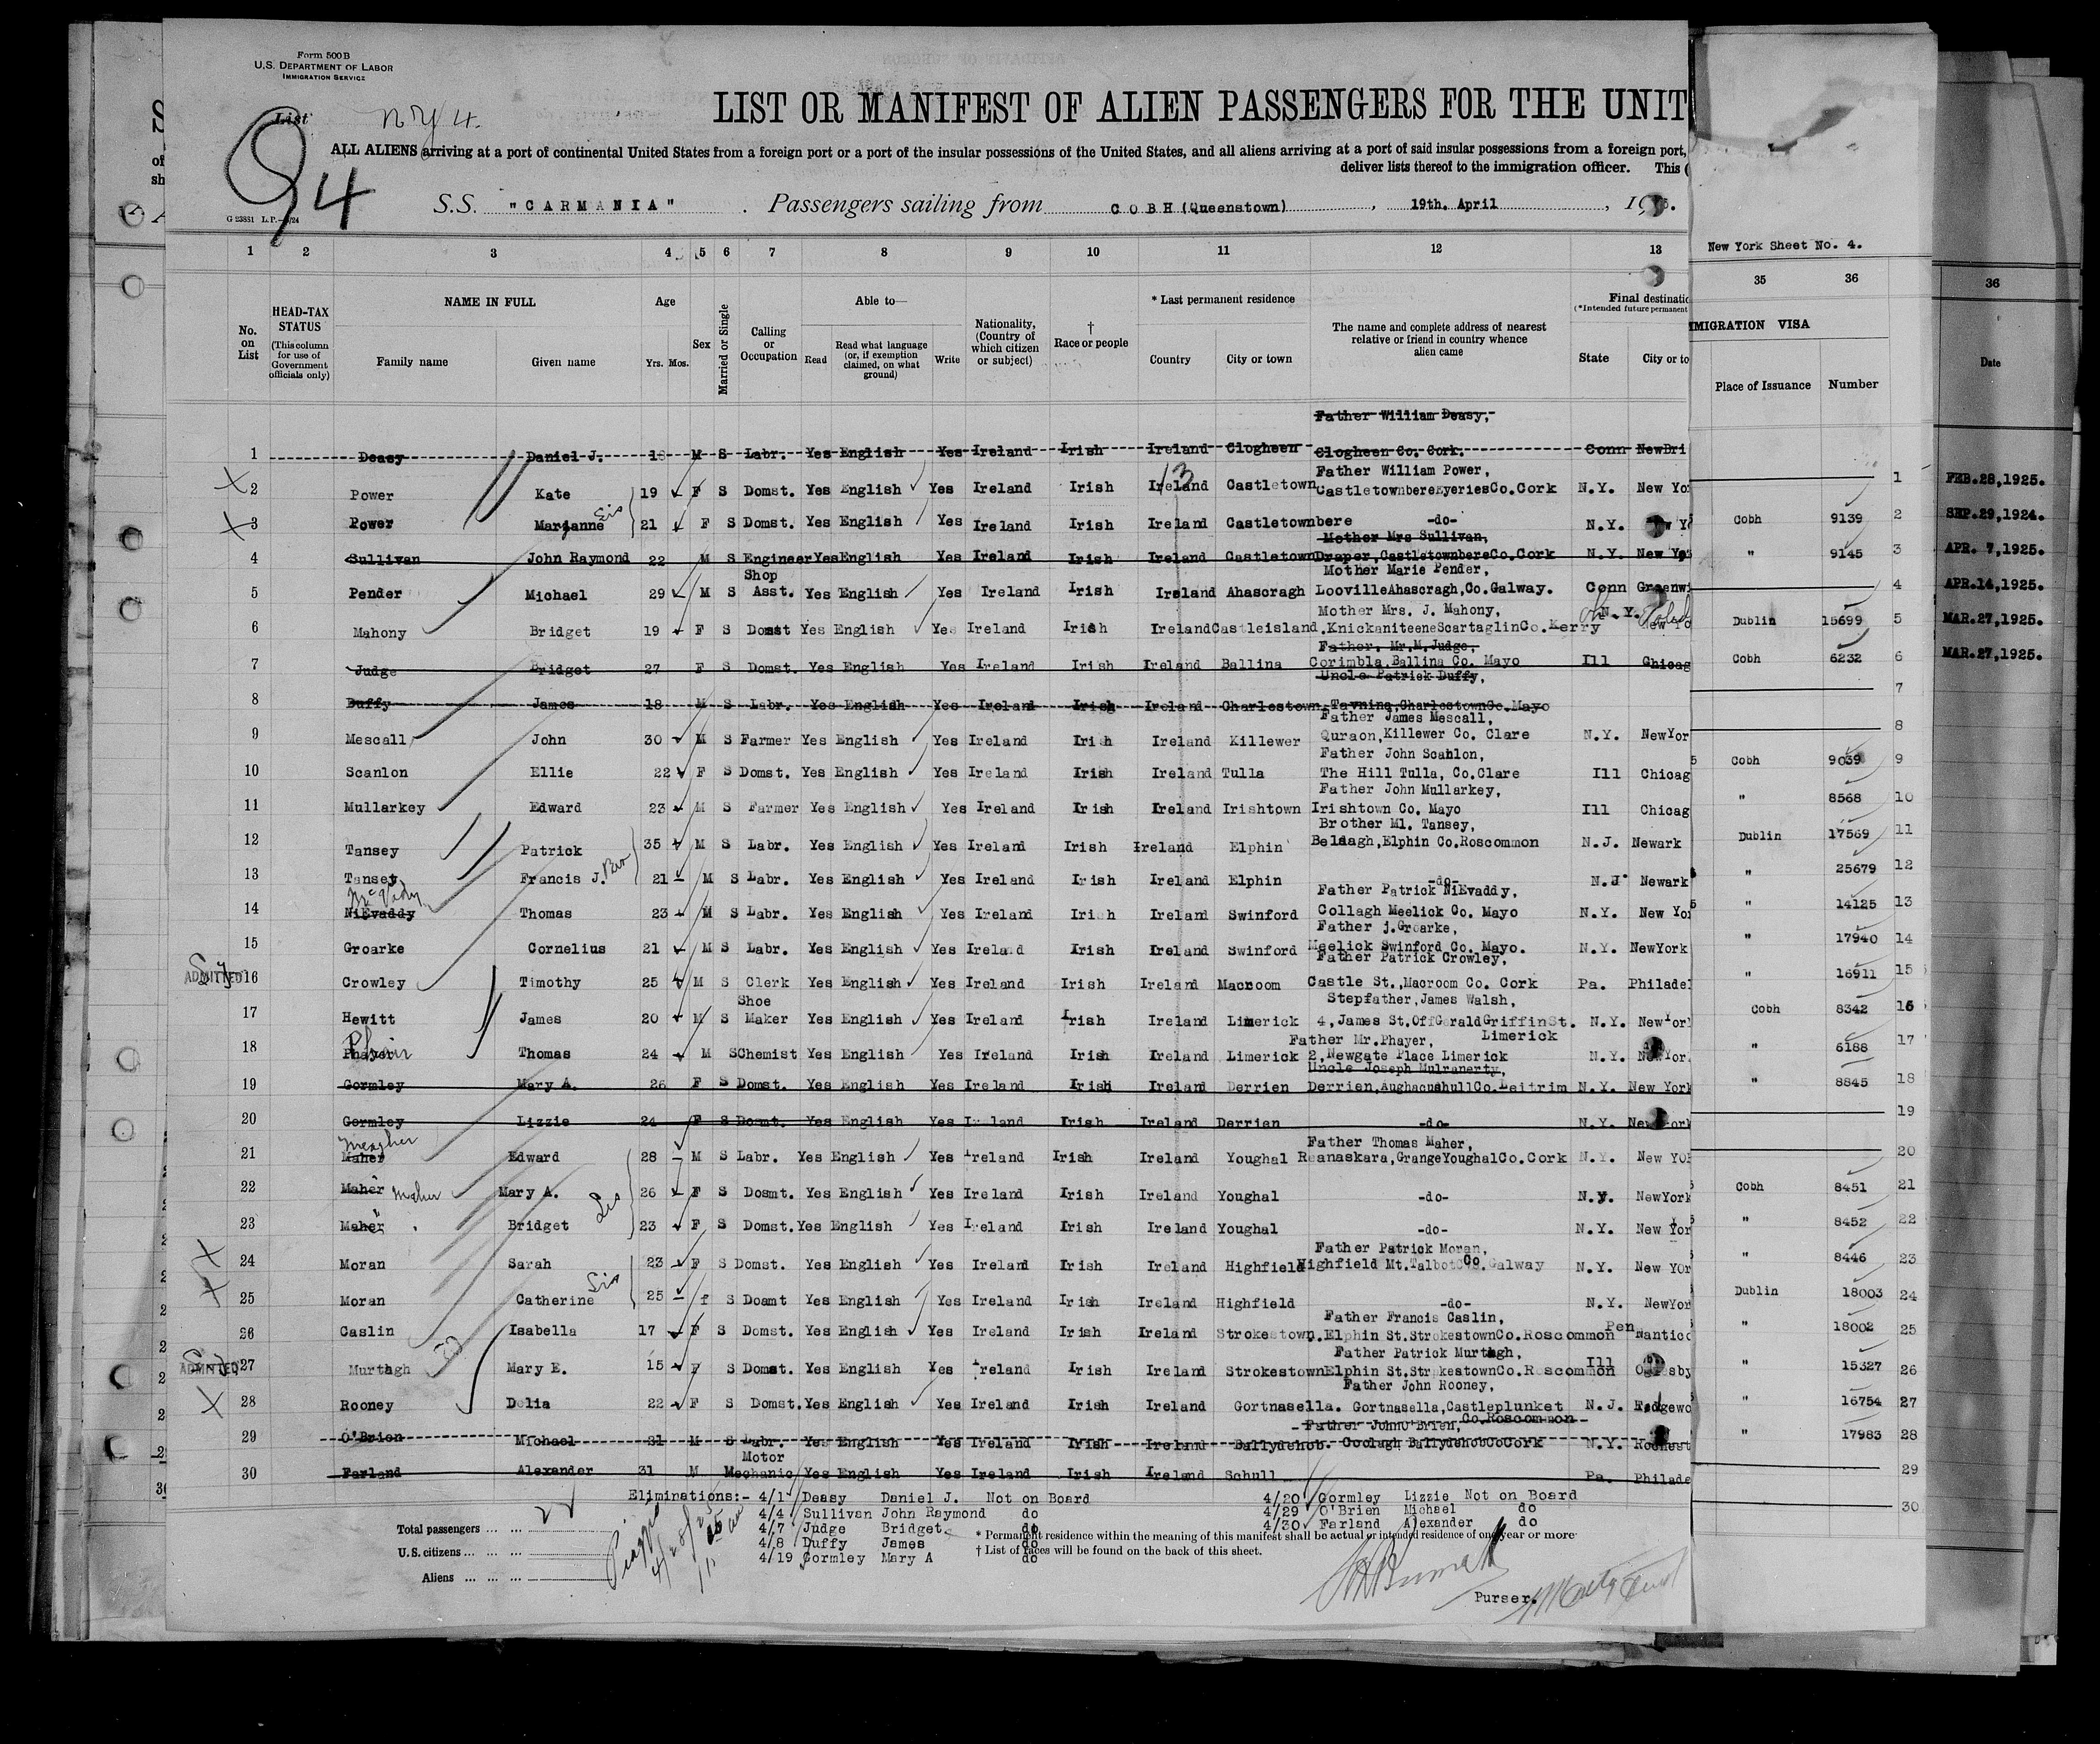 Form 500 B
U.S. DEPARTMENT OF LABOR
IMMIGRATION SERVICE
List
N Y 4.
94
LIST OR MANIFEST OF ALIEN PASSENGERS FOR THE UNIT
ALL ALIENS arriving at a port of continental United States from a foreign port or a port of the insular possessions of the United States, and all aliens arriving at a port of said insular possessions from a foreign port,
deliver lists thereof to the immigration officer. This (
G 23881 L.P.
S.S. "CARMANIA". Passengers sailing from COBH (Queenstown), 19th. April, 19
New York Sheet No. 4.
1 2 3 4 5 6 7 8 9 10 11 12 13 35 36 36
No. on List
HEAD-TAX STATUS
(This column for use of Government officials only)
NAME IN FULL
Family name Given name
Age
Yrs. Mos.
Sex
Married or Single
Calling or Occupation
Able to—
Read Read what language (or, if exemption claimed, on what ground) Write
Nationality, (Country of which citizen or subject)
† Race or people
* Last permanent residence
Country City or town
The name and complete address of nearest relative or friend in country whence alien came
Final destinatio
(*Intended future permanent
State City or to
MIGRATION VISA
Place of Issuance Number
Date
Father William Deasy,
1 Deasy Daniel J. 18 M S Labr. Yes English Yes Ireland Irish Ireland Clogheen Clogheen Co. Cork. Conn NewBri
13
Father William Power,
2 Power Kate 19 F S Domst. Yes English Yes Ireland Irish Ireland Castletown CastletownbereEyeriesCo.Cork N.Y. New Yor
3 Power Marianne Sis 21 F S Domst. Yes English Yes Ireland Irish Ireland Castletownbere -do- N.Y. New Yo
Mother Mrs Sullivan,
4 Sullivan John Raymond 22 M S Engineer Yes English Yes Ireland Irish Ireland Castletown Draper,CastletownbereCo.Cork N.Y. New Yo
Shop Mother Marie Pender,
5 Pender Michael 29 M S Asst. Yes English Yes Ireland Irish Ireland Ahascragh LoovilleAhascragh,Co.Galway. Conn Greenwi
Mother Mrs. J. Mahony,
6 Mahony Bridget 19 F S Domst Yes English Yes Ireland Irish Ireland Castleisland.KnickaniteeneScartaglinCo.Kerry N.Y. New Yo
Father, Mr.M.Judge,
7 Judge Bridget 27 F S Domst. Yes English Yes Ireland Irish Ireland Ballina Corimbla Ballina Co. Mayo Ill Chicag
Uncle Patrick Duffy,
8 Duffy James 18 M S Labr. Yes English Yes Ireland Irish Ireland Charlestown Tavnina,CharlestownCo.Mayo
Father James Mescall,
9 Mescall John 30 M S Farmer Yes English Yes Ireland Irish Ireland Killewer Quraon,Killewer Co. Clare N.Y. NewYor
Father John Scanlon,
10 Scanlon Ellie 22 F S Domst. Yes English Yes Ireland Irish Ireland Tulla The Hill Tulla, Co.Clare Ill Chicag
Father John Mullarkey,
11 Mullarkey Edward 23 M S Farmer Yes English Yes Ireland Irish Ireland Irishtown Irishtown Co. Mayo Ill Chicag
Brother Ml. Tansey,
12 Tansey Patrick 35 M S Labr. Yes English Yes Ireland Irish Ireland Elphin Beldagh,Elphin Co.Roscommon N.J. Newark
13 Tansey Francis J. Bro 21 M S Labr. Yes English Yes Ireland Irish Ireland Elphin -do- N.J. Newark
Father Patrick NiEvaddy,
14 NiEvaddy Thomas 23 M S Labr. Yes English Yes Ireland Irish Ireland Swinford Collagh Meelick Co. Mayo N.Y. New Yor
Father j.Groarke,
15 Groarke Cornelius 21 M S Labr. Yes English Yes Ireland Irish Ireland Swinford Meelick Swinford Co. Mayo. N.Y. NewYork
Father Patrick Crowley,
ADMITTED 16 Crowley Timothy 25 M S Clerk Yes English Yes Ireland Irish Ireland Macroom Castle St.,Macroom Co. Cork Pa. Philadel
Shoe Stepfather,James Walsh,
17 Hewitt James 20 M S Maker Yes English Yes Ireland Irish Ireland Limerick 4, James St.OffGeraldGriffinSt. N.Y. NewYor
Father Mr.Phayer, Limerick
18 Phayer Thomas 24 M S Chemist Yes English Yes Ireland Irish Ireland Limerick 2,Newgate Place Limerick N.Y. NewYor
Uncle Joseph Mulranerty,
19 Gormley Mary A. 26 F S Domst. Yes English Yes Ireland Irish Ireland Derrien Derrien,AughacushullCo.Leitrim N.Y. New York
20 Gormley Lizzie 24 F S Domst. Yes English Yes Ireland Irish Ireland Derrien -do- N.Y. New York
Meagher Father Thomas Maher,
21 Maher Edward 28 M S Labr. Yes English Yes Ireland Irish Ireland Youghal Reanaskara,GrangeYoughalCo.Cork N.Y. New YOr
22 Maher Maher Mary A. Sis 26 F S Dosmt. Yes English Yes Ireland Irish Ireland Youghal -do- N.Y. NewYork
23 Maher " Bridget 23 F S Domst. Yes English Yes Ireland Irish Ireland Youghal -do- N.Y. New Yor
Father Patrick Moran,
24 Moran Sarah 23 F S Domst. Yes English Yes Ireland Irish Ireland Highfield Highfield Mt.Talbot Co.Galway N.Y. New YOr
25 Moran Catherine Sis 25 f S Dosmt Yes English Yes Ireland Irish Ireland Highfield -do- N.Y. NewYor
Father Francis Caslin,
26 Caslin Isabella 17 F S Domst. Yes English Yes Ireland Irish Ireland Strokestown.Elphin St.StrokestownCo.Roscommon Pen Nantico
Father Patrick Murtagh,
ADMITTED 27 Murtagh Mary E. 15 F S Domst. Yes English Yes Ireland Irish Ireland Strokestown Elphin St.StrokestownCo.Roscommon Ill Oglesby
Father John Rooney,
28 Rooney Delia 22 F S Domst. Yes English Yes Ireland Irish Ireland Gortnasella. Gortnasella,Castleplunket N.J. Edgewo
Father JohnO'Brien, Co.Roscommon
29 O'Brien Michael 31 M S Labr. Yes English Yes Ireland Irish Ireland Ballydehob. Coolagh BallydehobCoCork N.Y. Rochest
Motor
30 Farland Alexander 31 M Mechanic Yes English Yes Ireland Irish Ireland Schull Pa. Philade
1 FEB.28,1925.
Cobh 9139 2 SEP.29,1924.
" 9145 3 APR. 7,1925.
4 APR.14,1925.
Dublin 15699 5 MAR.27,1925.
Cobh 6232 6 MAR.27,1925.
7
8
Cobh 9039 9
" 8568 10
Dublin 17569 11
" 25679 12
" 14125 13
" 17940 14
" 16911 15
Cobh 8342 16
" 6188 17
" 8845 18
19
20
Cobh 8451 21
" 8452 22
" 8446 23
Dublin 18003 24
" 18002 25
" 15327 26
" 16754 27
" 17983 28
29
30
Eliminations:- 4/1 Deasy Daniel J. Not on Board 4/20 Gormley Lizzie Not on Board
4/4 Sullivan John Raymond do 4/29 O'Brien Michael do
4/7 Judge Bridget. do 4/30 Farland Alexander do
4/8 Duffy James do
4/19 Gormley Mary A do
22
Total passengers ... ...
U.S. citizens ... ... ...
Aliens ... ... ...
* Permanent residence within the meaning of this manifest shall be actual or intended residence of one year or more
† List of races will be found on the back of this sheet.
Purser.